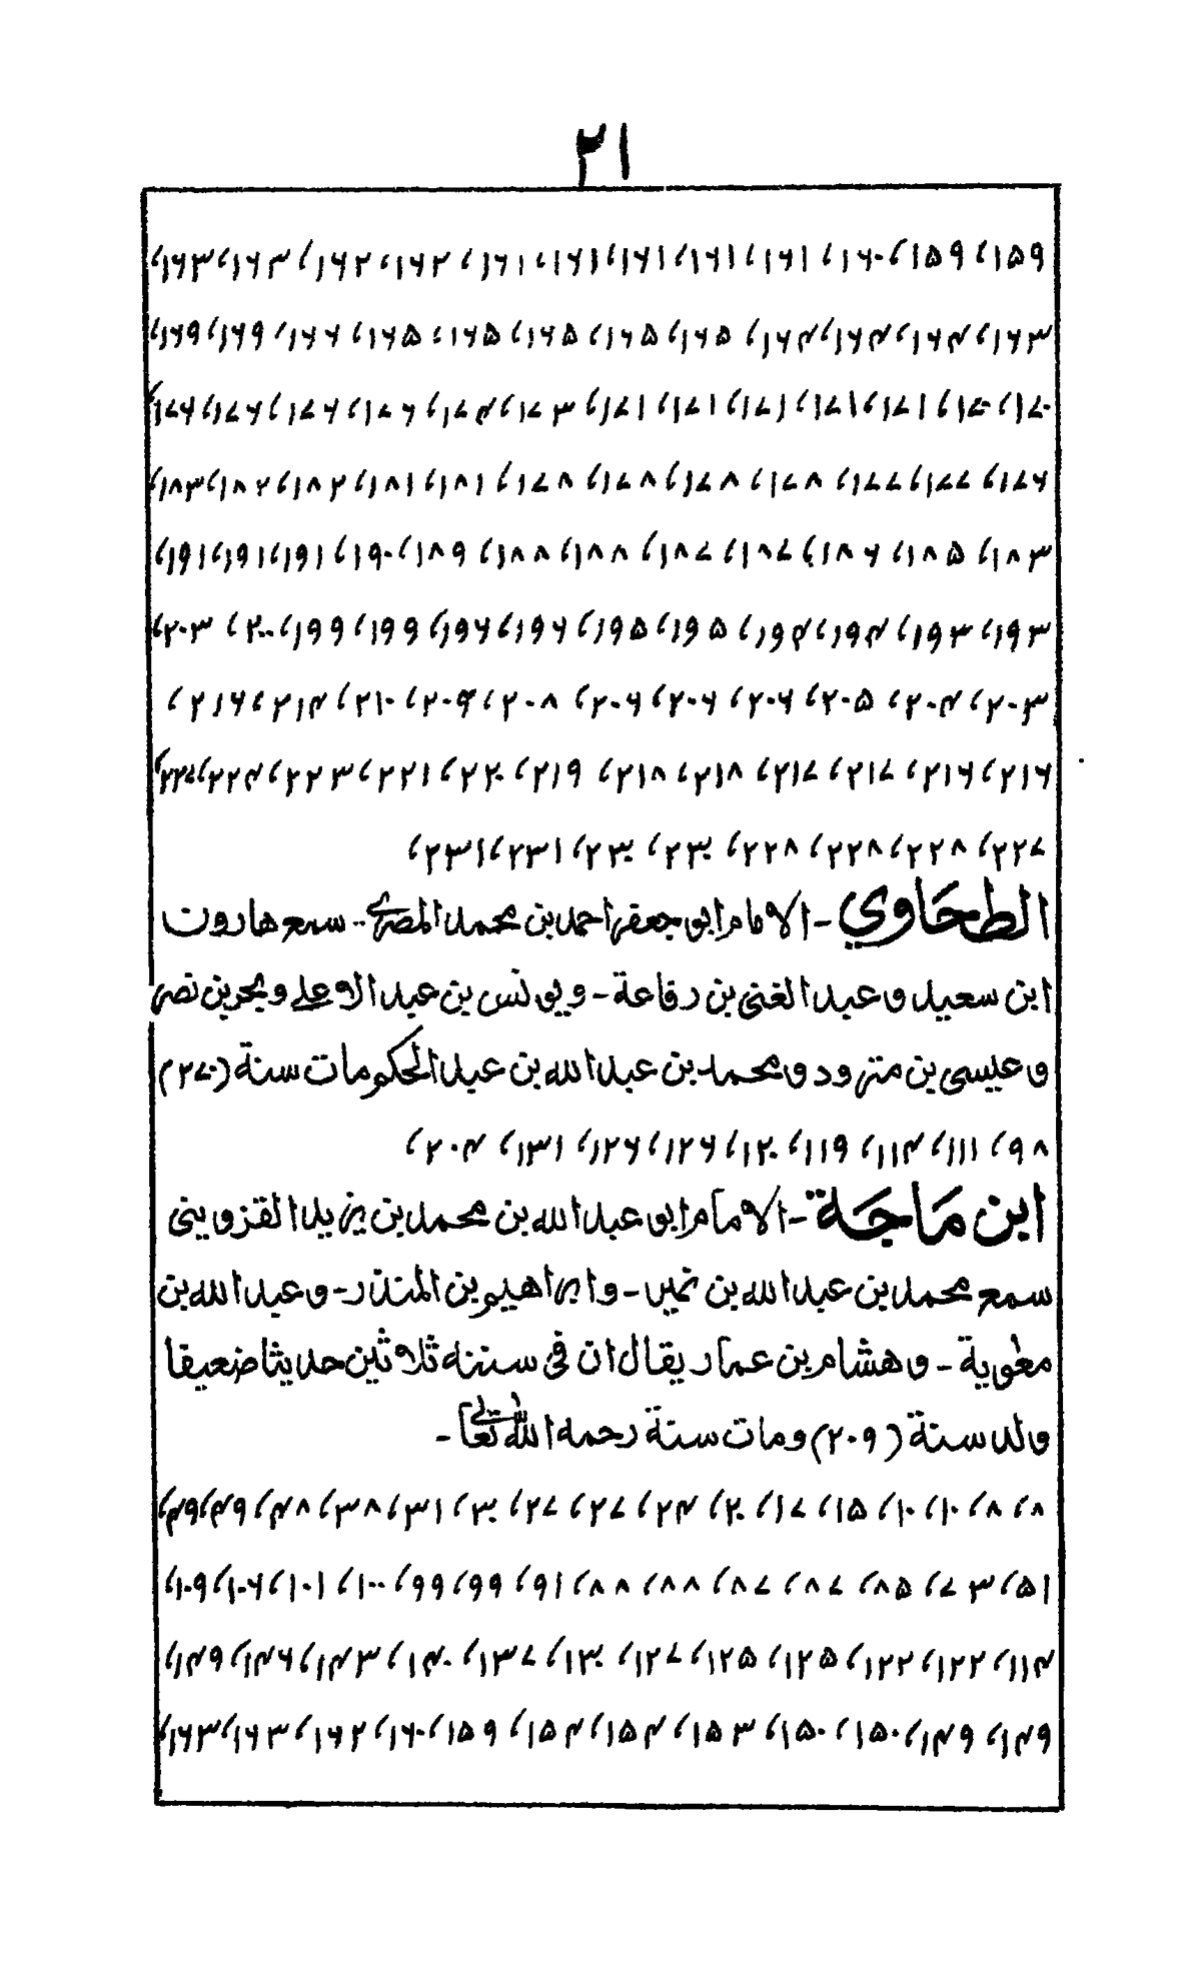 ۲۱
۱۵۹، ۱۵۹، ۱۶۰، ۱۶۱، ۱۶۱، ۱۶۱، ۱۶۱، ۱۶۱، ۱۶۲، ۱۶۲، ۱۶۳، ۱۶۳،
۱۶۳، ۱۶۴، ۱۶۴، ۱۶۴، ۱۶۵، ۱۶۵، ۱۶۵، ۱۶۵، ۱۶۵، ۱۶۶، ۱۶۹، ۱۶۹،
۱۷۰، ۱۷۰، ۱۷۱، ۱۷۱، ۱۷۱، ۱۷۱، ۱۷۱، ۱۷۳، ۱۷۴، ۱۷۶، ۱۷۶، ۱۷۶، ۱۷۶،
۱۷۶، ۱۷۷، ۱۷۷، ۱۷۸، ۱۷۸، ۱۷۸، ۱۷۸، ۱۸۱، ۱۸۱، ۱۸۲، ۱۸۲، ۱۸۳،
۱۸۳، ۱۸۵، ۱۸۶، ۱۸۷، ۱۸۷، ۱۸۸، ۱۸۸، ۱۸۹، ۱۹۰، ۱۹۱، ۱۹۱، ۱۹۱،
۱۹۳، ۱۹۳، ۱۹۴، ۱۹۴، ۱۹۵، ۱۹۵، ۱۹۶، ۱۹۶، ۱۹۹، ۱۹۹، ۲۰۰، ۲۰۳،
۲۰۳، ۲۰۴، ۲۰۵، ۲۰۶، ۲۰۶، ۲۰۶، ۲۰۸، ۲۰۹، ۲۱۰، ۲۱۴، ۲۱۶،
۲۱۶، ۲۱۶، ۲۱۷، ۲۱۷، ۲۱۸، ۲۱۸، ۲۱۹، ۲۲۰، ۲۲۱، ۲۲۳، ۲۲۴، ۲۲۷،
۲۲۷، ۲۲۸، ۲۲۸، ۲۲۸، ۲۳۰، ۲۳۰، ۲۳۱، ۲۳۱،
الطحاوي - الامام ابو جعفر احمد بن محمد المصری - سمع هارون
ابن سعید و عبد الغنی بن رفاعة - و یونس بن عبد الاعلی و بحر بن نصر
و عیسی بن مترود و محمد بن عبد الله بن عبد الحکم ومات سنة (۲۷۰)
۹۸، ۱۱۱، ۱۱۴، ۱۱۹، ۱۲۰، ۱۲۶، ۱۲۶، ۱۳۱، ۲۰۴،
ابن مَاجَة - الامام ابو عبد الله بن محمد بن یزید القزوینی
سمع محمد بن عبد الله بن نمیر - و ابراهیم بن المنذر - و عبد الله بن
معٰویة - و هشام بن عمار یقال ان فی سننه ثلاثین حدیثا ضعیفا
ولد سنة (۲۰۹) و مات سنة رحمه الله تعالی -
۸، ۸، ۱۰، ۱۰، ۱۵، ۱۷، ۲۰، ۲۴، ۲۷، ۲۷، ۳۰، ۳۱، ۳۸، ۴۸، ۴۹، ۴۹،
۵۱، ۷۳، ۸۵، ۸۷، ۸۷، ۸۸، ۸۸، ۹۱، ۹۹، ۹۹، ۱۰۰، ۱۰۱، ۱۰۶، ۱۰۹،
۱۱۴، ۱۲۲، ۱۲۲، ۱۲۵، ۱۲۵، ۱۲۷، ۱۳۰، ۱۳۷، ۱۴۰، ۱۴۳، ۱۴۶، ۱۴۹،
۱۴۹، ۱۴۹، ۱۵۰، ۱۵۰، ۱۵۳، ۱۵۴، ۱۵۴، ۱۵۹، ۱۶۰، ۱۶۲، ۱۶۳، ۱۶۳،